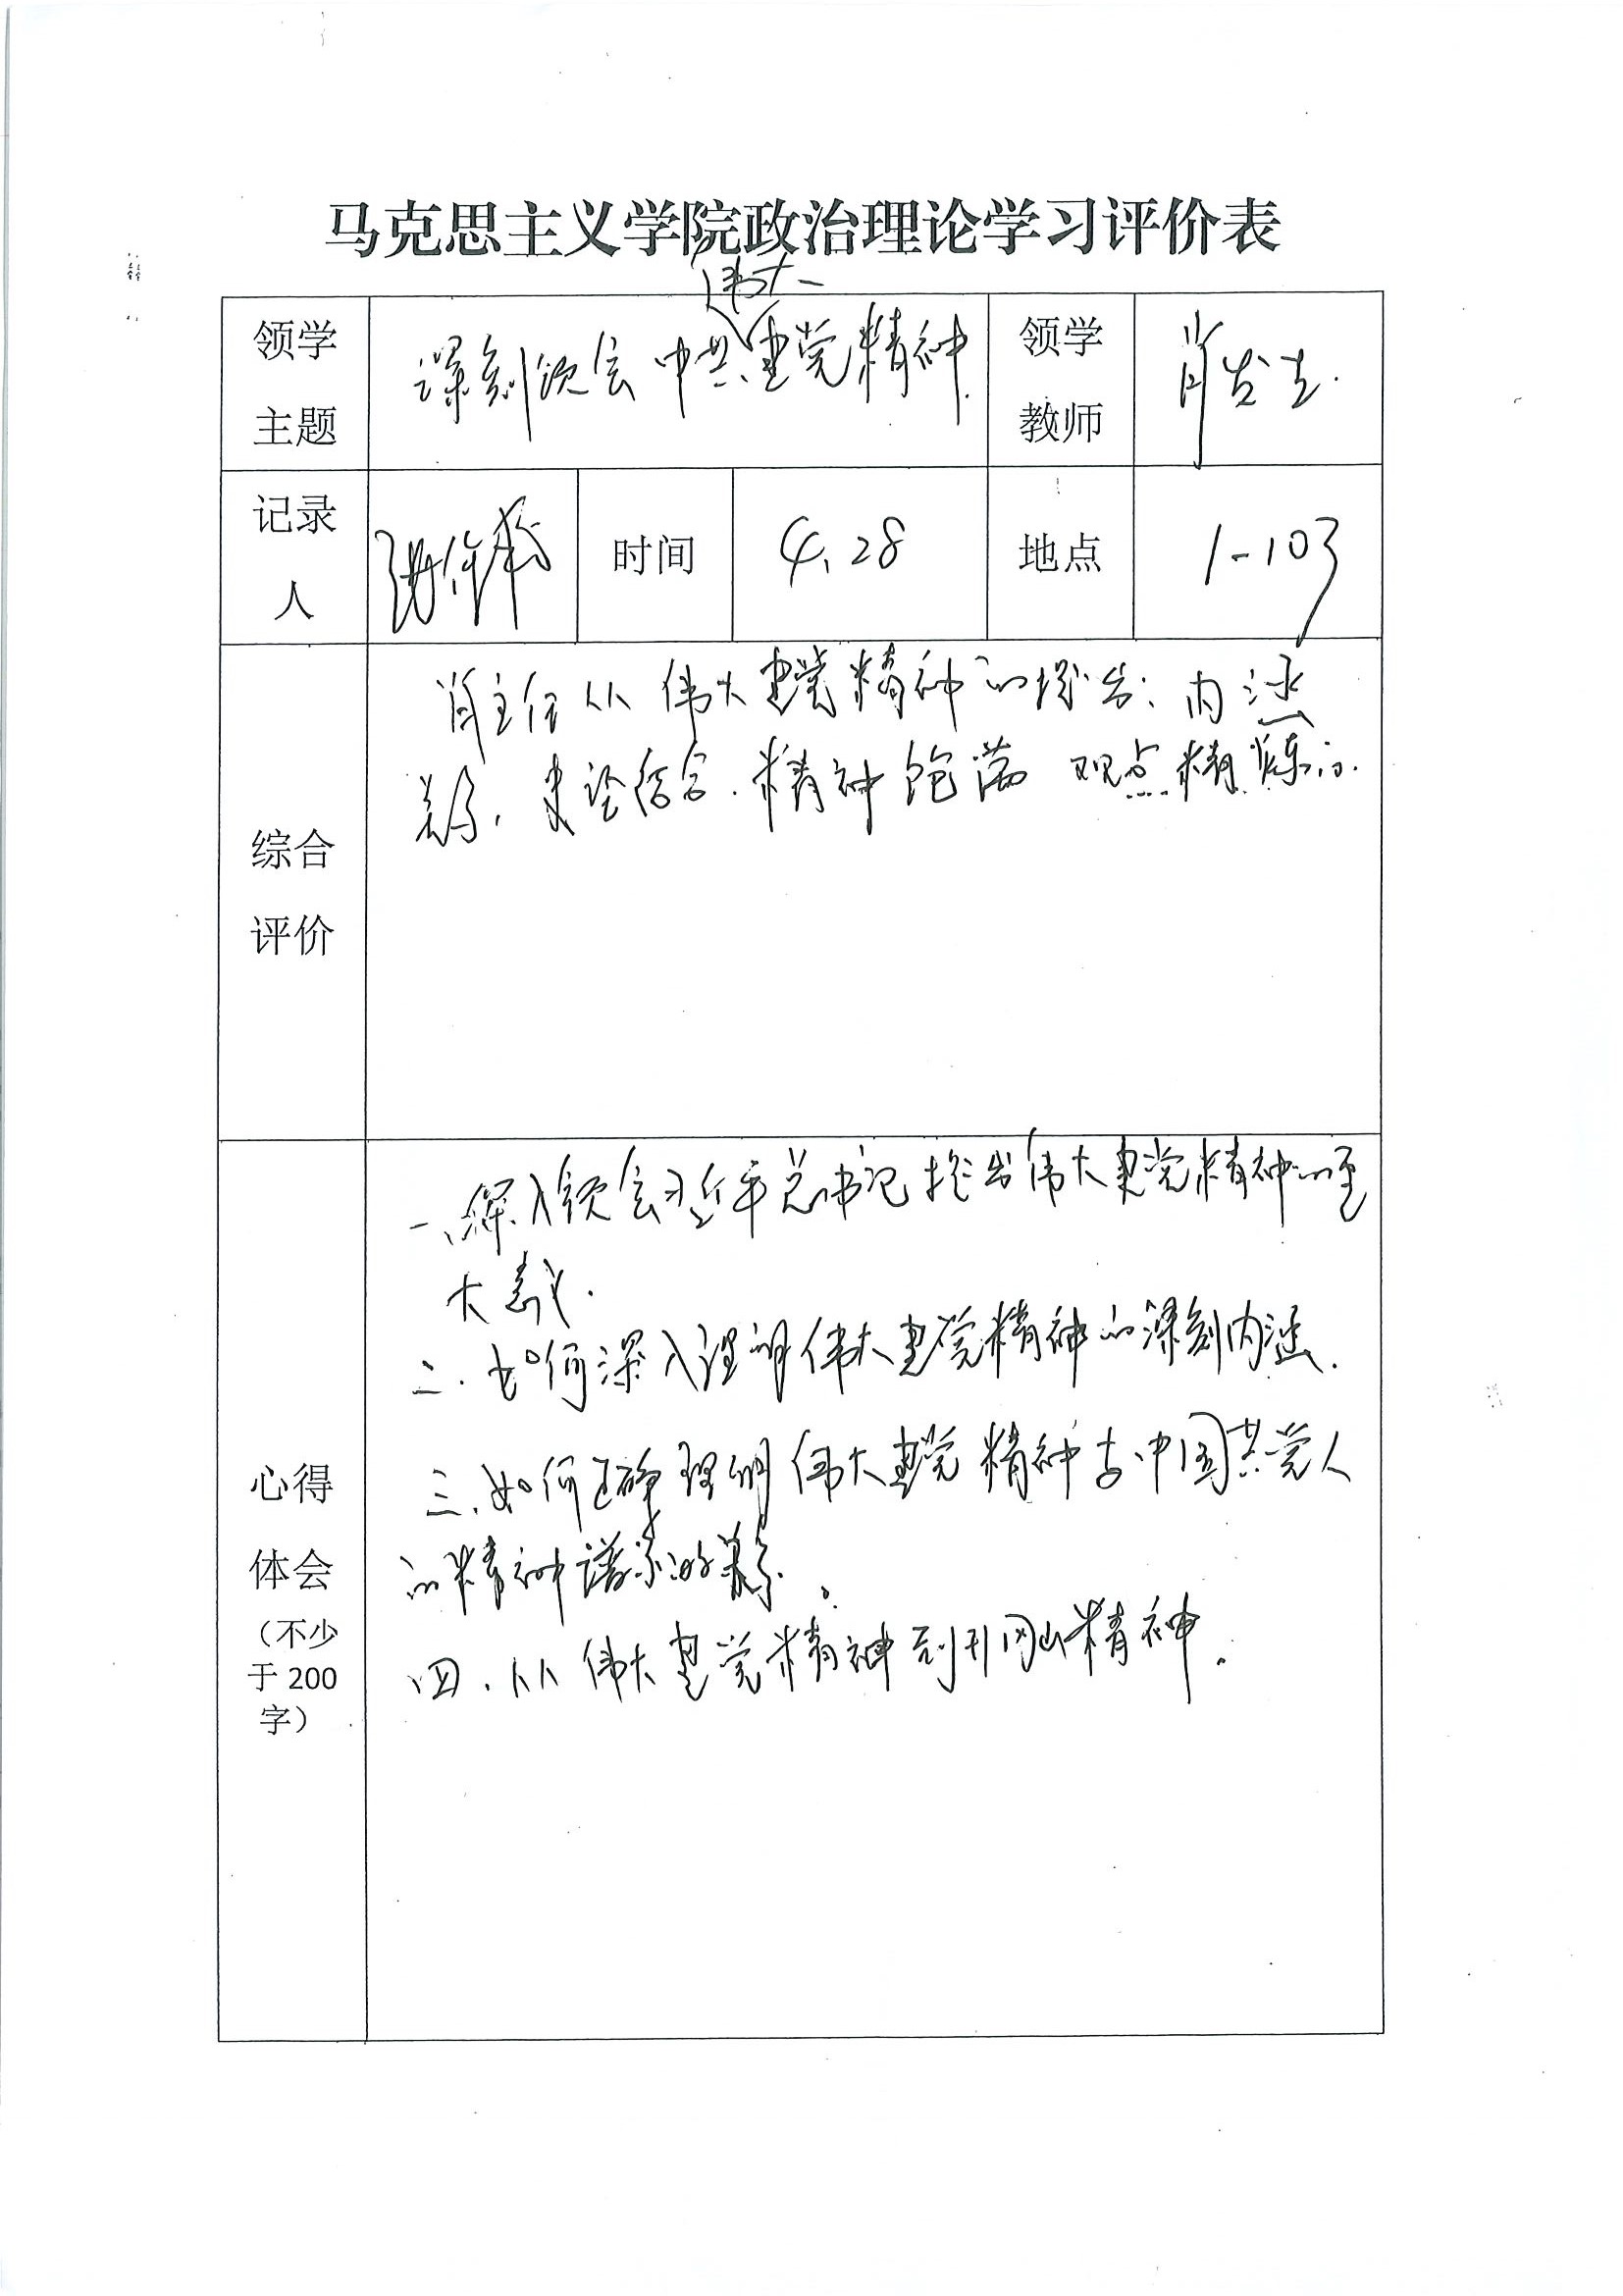 马克思主义学院政治理论学习评价表
领学主题
深刻领会中共伟大建党精神
领学教师
肖发生
记录人
时间
4.28
地点
1-103
综合评价
肖主任从伟大建党精神的提出、内涵
关系,史论结合.精神饱满 观点精炼
心得体会
(不少于200字)
一、深入领会习近平总书记提出伟大建党精神的重
大意义.
二.如何深入理解伟大建党精神的深刻内涵.
三.如何正确理解伟大建党精神与中国共党人
的精神谱系的关系.
四.从伟大建党精神到井冈山精神。